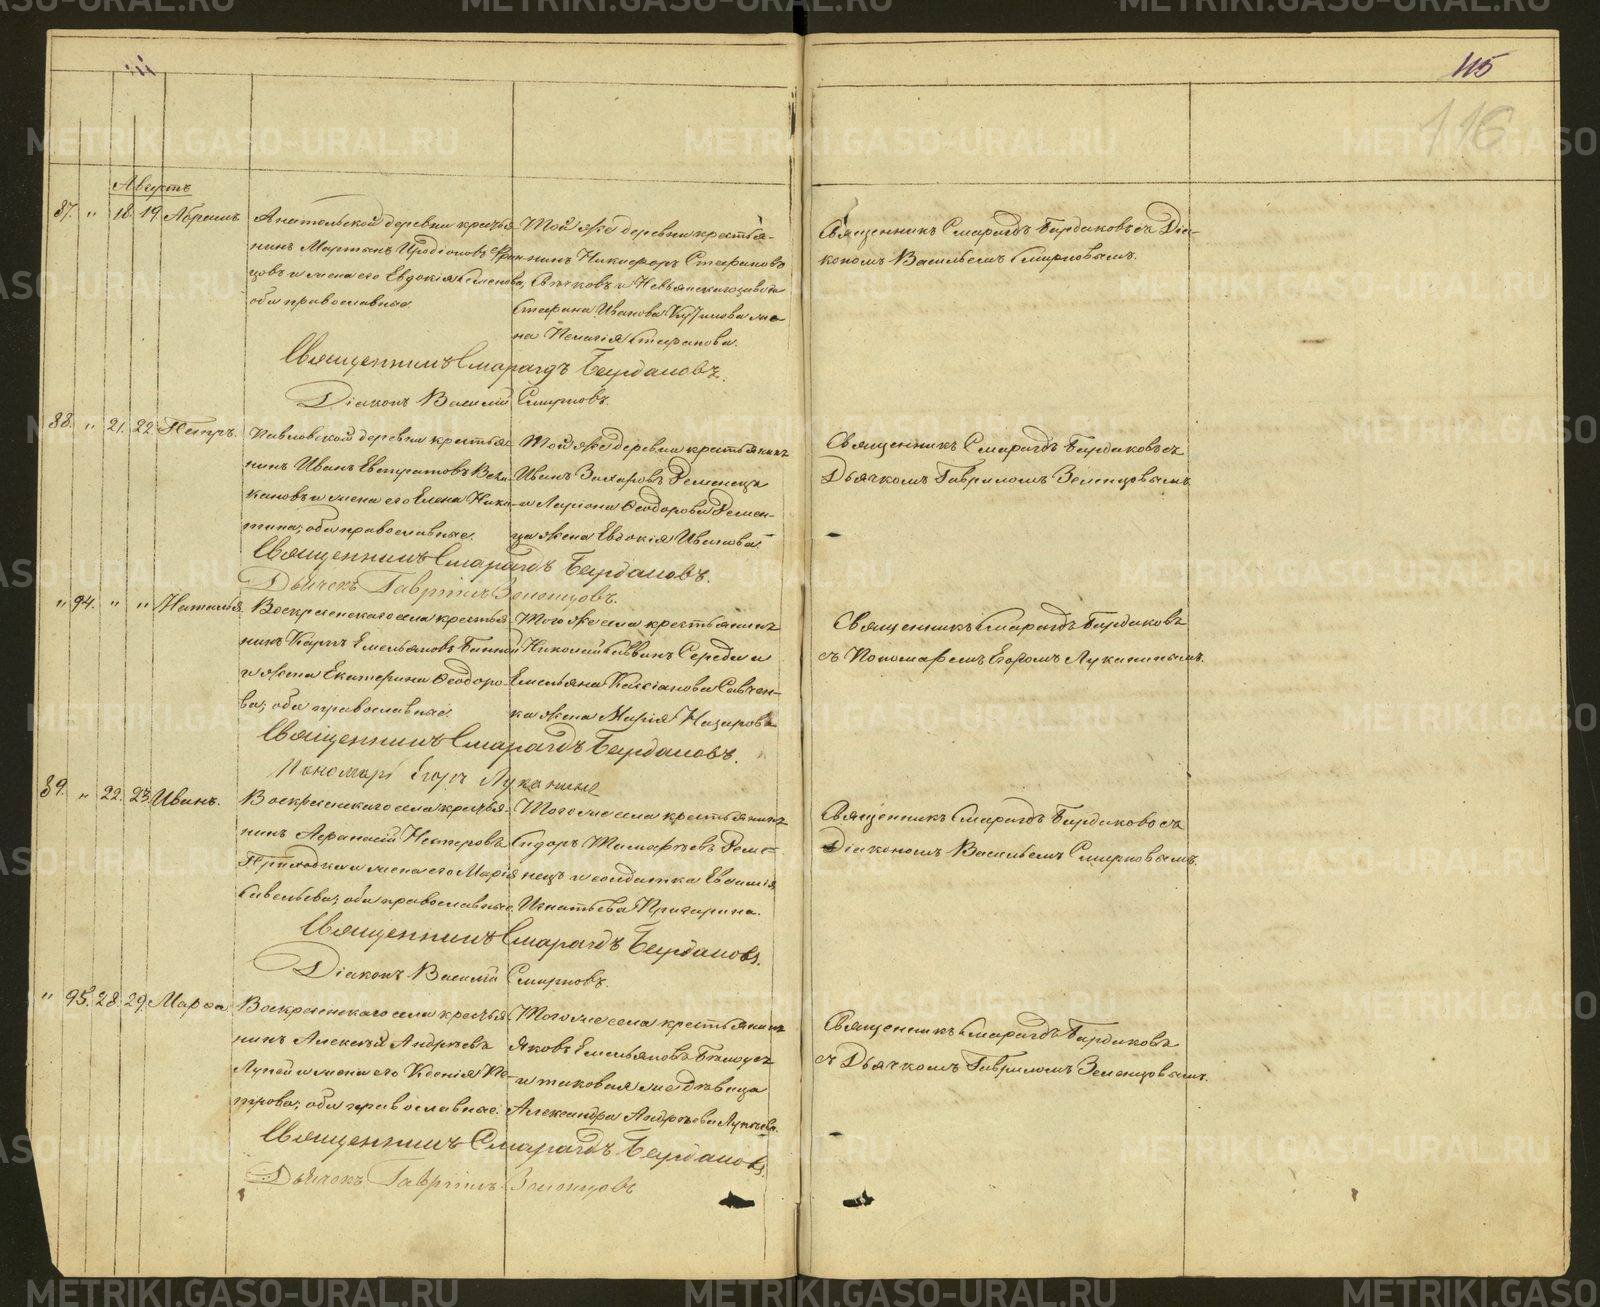 METRIKI.GASO-URAL.RU
115
116
Августъ
87. " 18. 19. Абрамъ
Анательской деревни крестья-
нинъ Мартинъ Иродіоновъ
цовъ и жена его Евдокія Семенова,
оба православные.
Той же деревни крестья-
нинъ Никифоръ Стефановъ
и Невьянскаго завода
Стефана Иванова жена
Пелагія Стефанова.
Священникъ Смарагдъ Бурдаковъ съ Діа-
кономъ Васильемъ Смирновымъ.
Священникъ Смарагдъ Бурдаковъ.
Діаконъ Василій Смирновъ.
88. " 21. 22. Петръ.
Павловской деревни крестья-
нинъ Иванъ Евстратовъ
кановъ и жена его Елена Ники-
тина, оба православные.
Той же деревни крестьянинъ
Иванъ Захаровъ Ременецъ
и Ларіона Ѳеодорова Ремен-
ца жена Евдокія Иванова.
Священникъ Смарагдъ Бурдаковъ съ
Дьячкомъ Гавриломъ Зеленцовымъ.
Священникъ Смарагдъ Бурдаковъ.
Дьячекъ Гавріилъ Зеленцовъ.
" 94. " " Наталья
Воскресенскаго села крестья-
нинъ Карпъ Емельяновъ
и жена Екатерина Ѳеодоро-
ва, оба православные.
Того же села крестьянинъ
Николай Середа и
Емельяна Кассіанова Савчен-
ка жена Марія Назарова
Священникъ Смарагдъ Бурдаковъ
съ Пономаремъ Егоромъ Луканинымъ.
Священникъ Смарагдъ Бурдаковъ.
Пономарь Егоръ Луканинъ
89. " 22. 23. Иванъ.
Воскресенскаго села крестья-
нинъ Аѳанасій Нестеровъ
Приходка и жена его Марія
Савельева, оба православные.
Того же села крестьянинъ
Сидоръ Тимоѳеевъ Реме-
нецъ и солдатка Евѳимія
Игнатьева Пригарина.
Священникъ Смарагдъ Бурдаковъ съ
Діакономъ Васильемъ Смирновымъ.
Священникъ Смарагдъ Бурдаковъ.
Діаконъ Василій Смирновъ.
" 95. 28. 29. Марѳа
Воскресенскаго села крестья-
нинъ Алексѣй Андреевъ
Лупей и жена его Ксенія Пе-
трова, оба православные.
Того же села крестьянинъ
Яковъ Емельяновъ Бѣлоусъ
и таковая же дѣвица
Александра Андреева Лупеева.
Священникъ Смарагдъ Бурдаковъ
съ Дьячкомъ Гавриломъ Зеленцовымъ.
Священникъ Смарагдъ Бурдаковъ.
Дьячекъ Гавріилъ Зеленцовъ